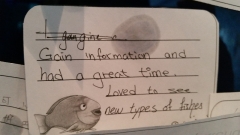 Gain information and
had a great time.
Loved to see
new types of